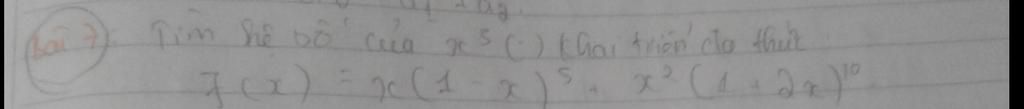 Bài 7) Tìm hệ số của x^5 (.) khai triển đa thức
f(x) = x(1 - x)^5 + x^2(1 + 2x)^10